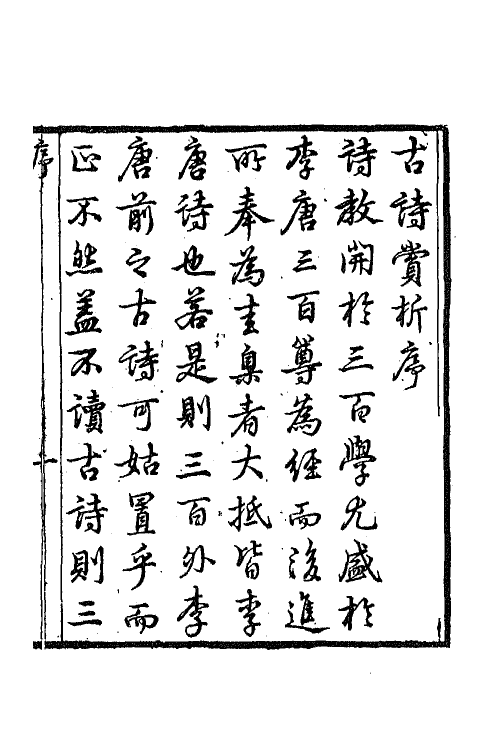 古詩賞析序
詩教開於三百學尤盛於
李唐三百尊為經而後進
所奉為圭臬者大抵皆李
唐詩也若是則三百外李
唐前之古詩可姑置乎而
正不然蓋不讀古詩則三
序
一